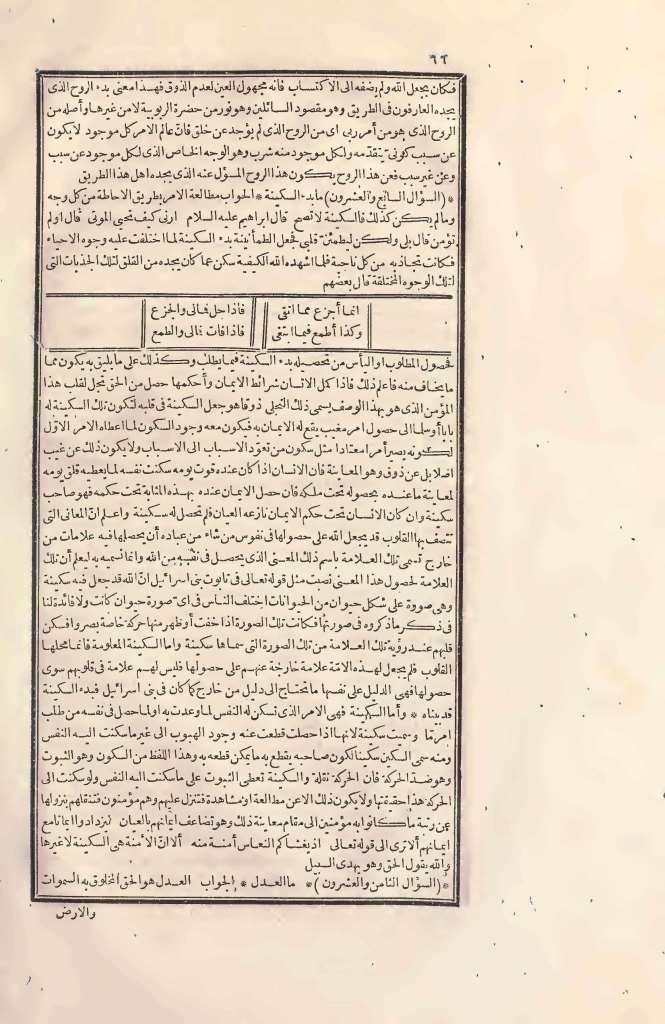 ٦٢
فكان بجعل الله ولم يضفه الى الاكتساب فانه مجهول العين لعدم الذوق فهذا معنى بدء الروح الذى
يجده العارفون فى الطريق وهو مقصود السائلين وهو نور من حضرة الربوبية لا من غيرها وأصله من
الروح الذى هو من أمر ربى اى من الروح الذى لم يؤجد عن خلق فانّ عالم الامر كل موجود لا يكون
عن سبب كونىّ يتقدّمه ولكل موجود منه شرب وهو الوجه الخاص الذى لكل موجود عن سبب
وعن غير سبب فعن هذا الروح يكون هذا الروح المسؤل عنه الذى يجده اهل هذا الطريق
* (السؤال السابع والعشرون) ما بدء السكينة * الجواب مطالعة الامر بطريق الاحاطة من كل وجه
وما لم يكن كذلك فالسكينة لا تصح قال ابراهيم عليه السلام ارنى كيف تحيى الموتى قال اولم
تؤمن قال بلى ولكن ليطمئنّ قلبى فجعل الطمأنينة بدء السكينة لما اختلفت عليه وجوه الاحياء
فكانت تجاذبه من كل ناحية فلما اشهده الله الكيفية سكن عما كان يجده من القلق لتلك الجذبات التى
لتلك الوجوه المختلفة قال بعضهم
انما أجزع مما اتقى فاذا حل فمالى والجزع
وكذا أطمع فيما ابتغى فاذا فات فمالى والطمع
فحصول المطلوب او اليأس من تحصيله بدء السكينة فيما يطلب وكذلك على ما يليق به يكون مما
ما يخاف منه فاعلم ذلك فاذا كمل الانسان شرائط الايمان وأحكمها حصل من الحق تجل لقلب هذا
المؤمن الذى هو بهذا الوصف يسمى ذلك التجلى ذوقا هو جعل السكينة فى قلبه لتكون تلك السكينة له
بابا أو سلما الى حصول امر مغيب يقع له الايمان به فيكون معه وجود السكون لما اعطاه الامر الاوّل
لكونه يصير أمرا معتادا مثل سكون من تعوّد الاسباب الى الاسباب ولا يكون ذلك عن غيب
اصلا بل عن ذوق وهو المعاينة فان الانسان اذا كان عنده قوت يومه سكنت نفسه لما يعطيه قلق يومه
لمعاينة ما عنده بحصوله تحت ملكه فان حصل الايمان عنده بهذه المثابة تحت حكمه فهو صاحب
سكينة وان كان الانسان تحت حكم الايمان نازعه العيان فلم تحصل له سكينة واعلم انّ المعانى التى
تتصف بها القلوب قد يجعل الله على حصولها فى نفوس من شاء من عباده أن يحصلها فيه علامات من
خارج تسمى تلك العلامة باسم ذلك المعنى الذى يحصل فى نفسه من الله وانما تسميه به ليعلم أن تلك
العلامة لحصول هذا المعنى نصبت مثل قوله تعالى فى تابوت بنى اسرائيل انّ الله قد جعل فيه سكينة
وهى صورة على شكل حيوان من الحيوانات اختلف الناس فى اىّ صورة حيوان كانت ولا فائدة لنا
فى ذكر ما ذكروه فى صورتها فكانت تلك الصورة اذا خفت أو ظهر منها حركة خاصة بصروا فسكن
قلبهم عند رؤية تلك العلامة من تلك الصورة التى سماها سكينة واما السكينة المعلومة فانما محلها
القلوب فلم يجعل لهذه الامّة علامة خارجة عنهم على حصولها فليس لهم علامة فى قلوبهم سوى
حصولها فهى الدليل على نفسها ما تحتاج الى دليل من خارج كما كان فى بنى اسرائيل فبدء السكينة
قد بيناه * وأما السكينة فهى الامر الذى تسكن له النفس لما وعدت به او لما حصل فى نفسه من طلب
امر تما وسميت سكينة لانها اذا حصلت قطعت عنه وجود الهبوب الى غير ما سكنت اليه النفس
ومنه سمى السكين سكينا لكون صاحبه يقطع به ما يمكن قطعه به وهذا اللفظ من السكون وهو الثبوت
وهو ضدّ الحركة فان الحركة نقلة والسكينة تعطى الثبوت على ما سكنت اليه النفس ولو سكنت الى
الحركة هذا حقيقتها ولا يكون ذلك الا عن مطالعة او مشاهدة فتنزل عليهم وهم مؤمنون فتنقلهم بنزولها
عن رتبة ما كانوا به مؤمنين الى مقام معاينة ذلك وهو تضاعف ايمانهم بالعيان ليزدادوا ايمانا مع
ايمانهم ألا ترى الى قوله تعالى اذ يغشاكم النعاس أمنة منه ألا انّ الأمنة هى السكينة لا غيرها
والله يقول الحق وهو يهدى السبيل
* (السؤال الثامن والعشرون) * ما العدل * الجواب العدل هو الحق المخلوق به السموات
والارض